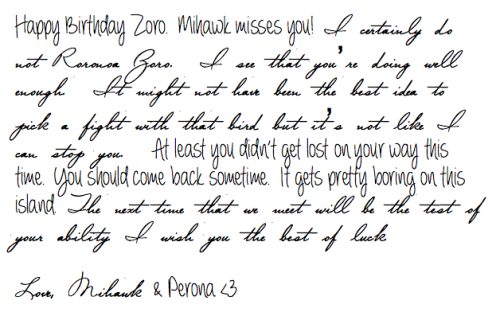 Happy Birthday Zoro. Mihawk misses you! I certainly do
not Roronoa Zoro. I see that you're doing well
enough. It might not have been the best idea to
pick a fight with that bird but it's not like I
can stop you. At least you didn't get lost on your way this
time. You should come back sometime. It gets pretty boring on this
island. The next time that we meet will be the test of
your ability I wish you the best of luck
Love, Mihawk & Perona <3